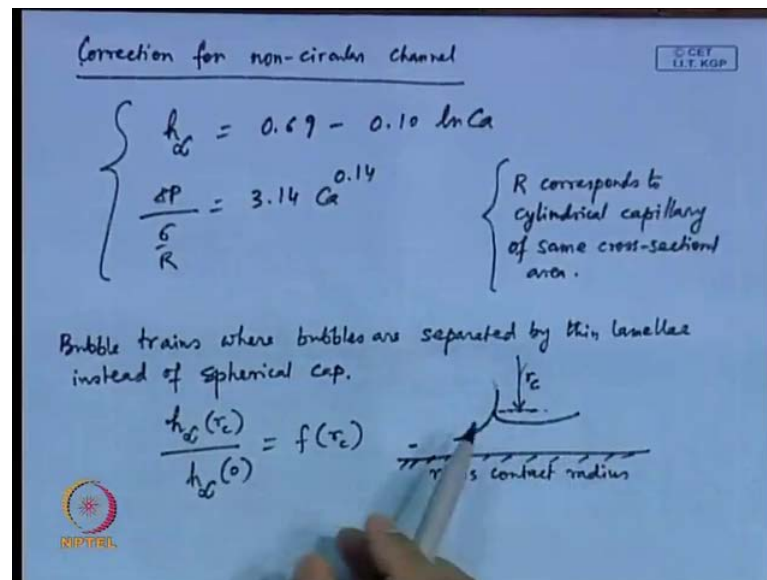 Correction for non-circular channel
© CET
I.I.T. KGP
h∝ = 0.69 - 0.10 ln Ca
ΔP / (σ/R) = 3.14 Ca^0.14
R corresponds to
cylindrical capillary
of same cross-sectional
area.
Bubble trains where bubbles are separated by thin lamellae
instead of spherical cap.
h∝(rc) / h∝(0) = f(rc)
rc
is contact radius
NPTEL